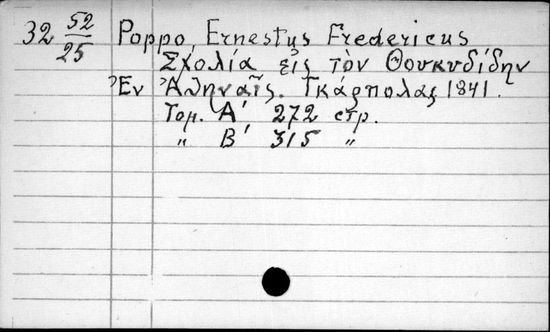 32 52/25 Poppo, Ernestus Fredericus
Σχολία εἰς τὸν Θουκυδίδην
Ἐν Ἀθηναῖς. Γκάρπολας 1841.
Τομ. Α' 272 στρ.
„ Β' 315 „